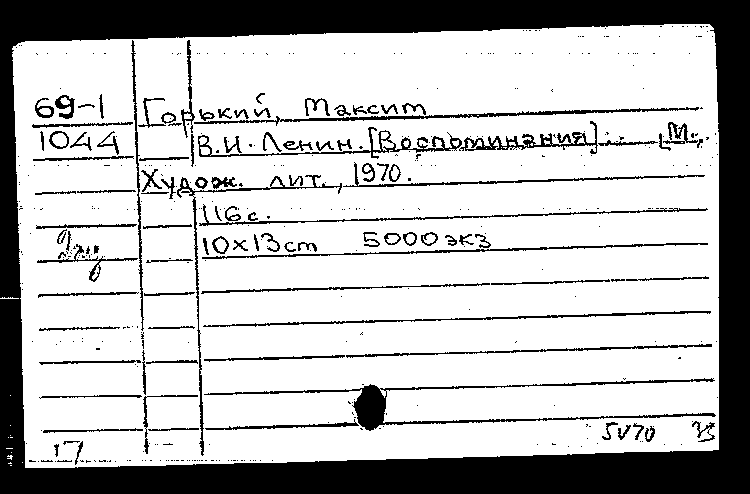 69-1 Горький, Максим
1044 В.И. Ленин. [Воспоминания]. [М.,
Худож. лит., 1970.
116 с.
10х13 cm 5000 экз
17
5V70